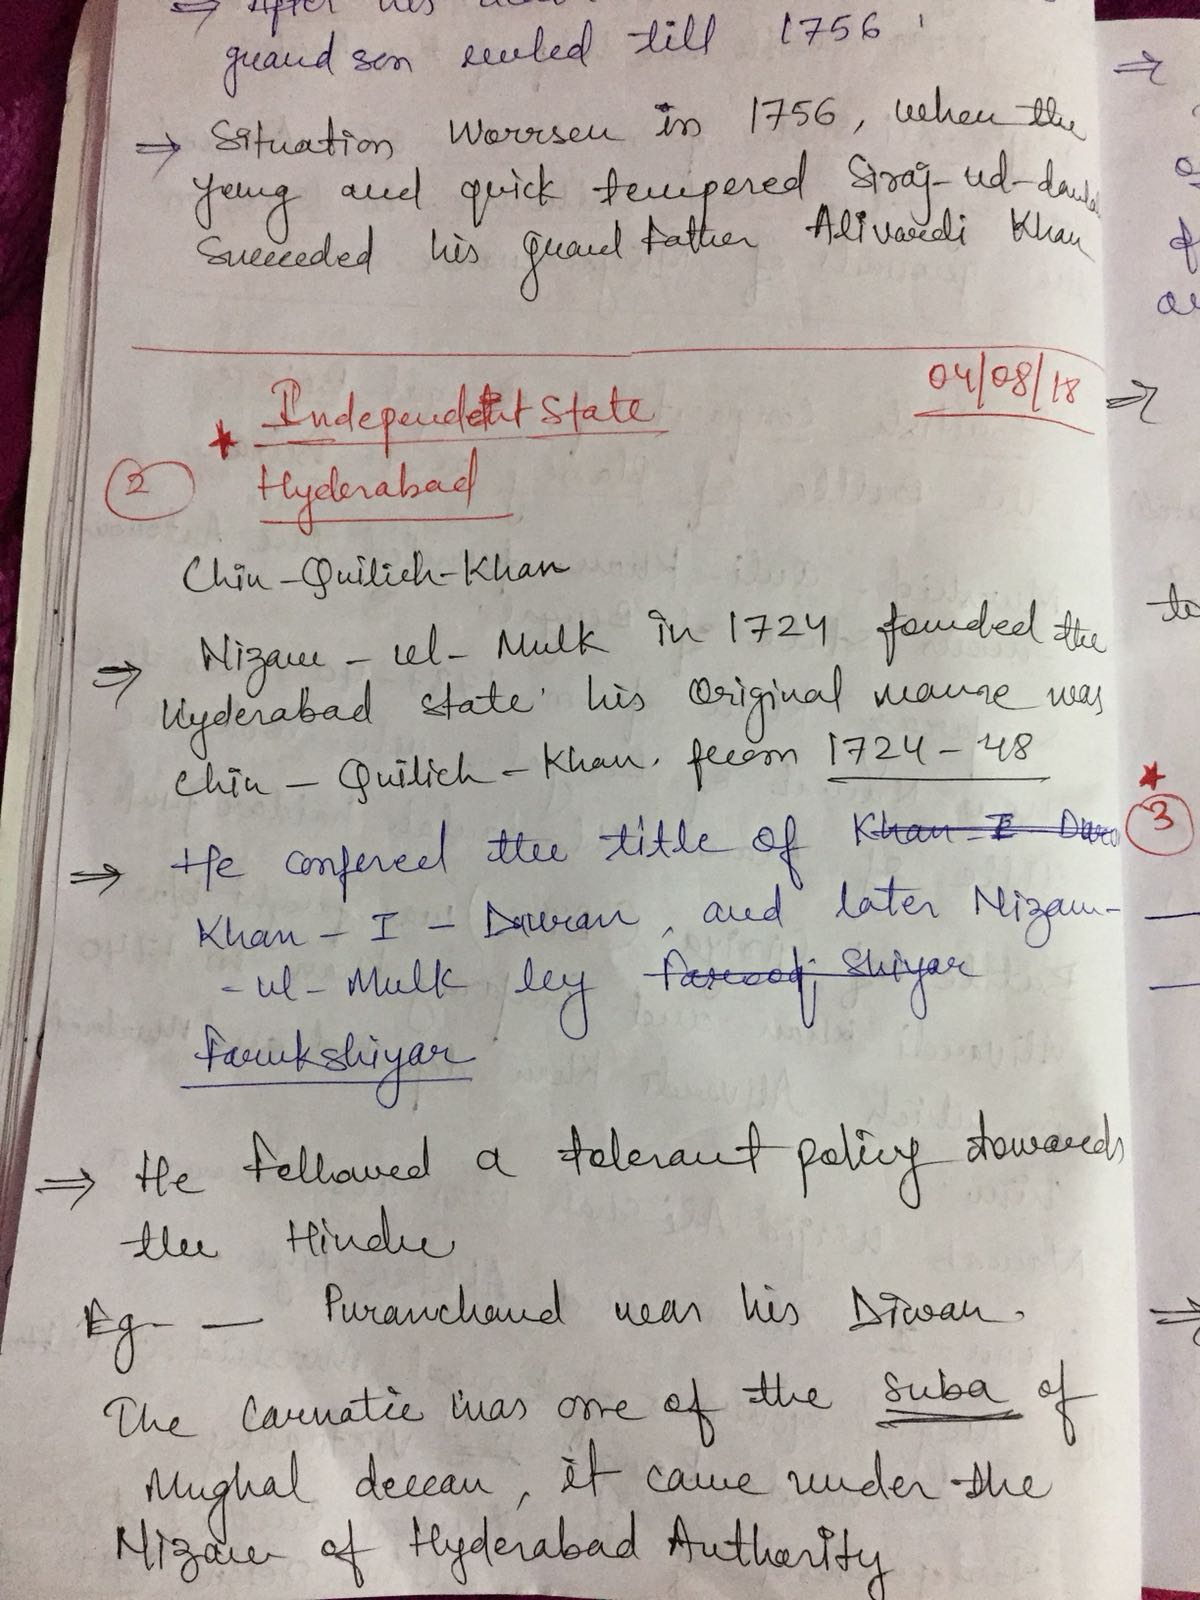 ⇒ After his
grand son ruled till 1756
⇒ Situation Worrsen in 1756, when the
young and quick tempered Siraj-ud-daula
Succeeded his grand father Alivardi Khan
04/08/18
* Independent State
2 Hyderabad
Chin-Quilich-Khan
⇒ Nizam-ul-Mulk in 1724 founded the
Hyderabad state his Original name was
Chin-Quilich-Khan. from 1724-48
⇒ He confered the title of Khan I
Khan-I-Dauran, and later Nizam-
-ul-Mulk by Farooq Shiyar
Farukshiyar
⇒ He followed a tolerant policy towards
the Hindu
Eg- — Puranchand was his Diwan.
The Carnatic was one of the suba of
Mughal deccan, it came under the
Nizam of Hyderabad Authority
⇒
⇒
to
* 3
⇒